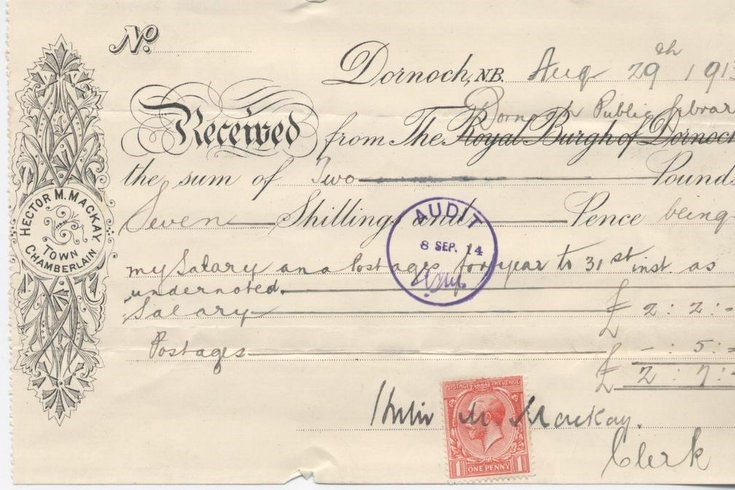 No.
Dornoch, N.B. Aug 29th 191
Dornoch Public Library
Received from The Royal Burgh of Dornoch
the sum of Two Pounds
Seven Shillings and Pence being
my Salary and Postages for year to 31st inst as
undernoted.
Salary £ 2 : 2 : -
Postages - : 5 : -
£ 2 : 7 : -
M. Mackay.
Clerk
HECTOR M. MACKAY
TOWN
CHAMBERLAIN
AUDIT
8 SEP. 14
POSTAGE REVENUE
1 ONE PENNY 1